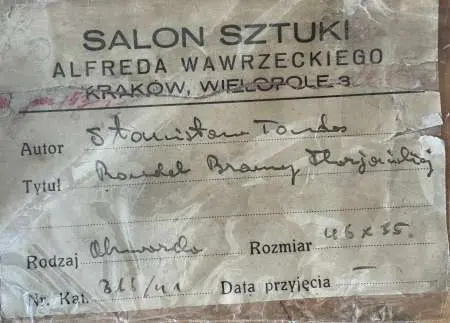 SALON SZTUKI
ALFREDA WAWRZECKIEGO
KRAKÓW, WIELOPOLE 3
Autor Stanisław Tondos
Tytuł Rondel Bramy Florjańskiej
Rodzaj Akwarela Rozmiar 46 x 35.
Nr. Kat. /41 Data przyjęcia —